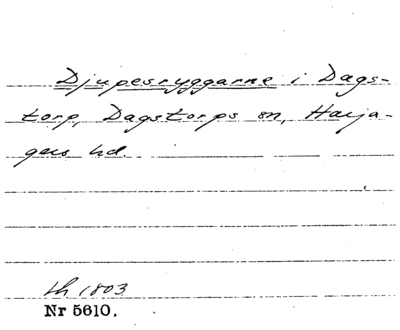 Djupesryggarne i Dags-
torp, Dagstorps sn, Harja-
gers hd.
th 1803
Nr 5610.